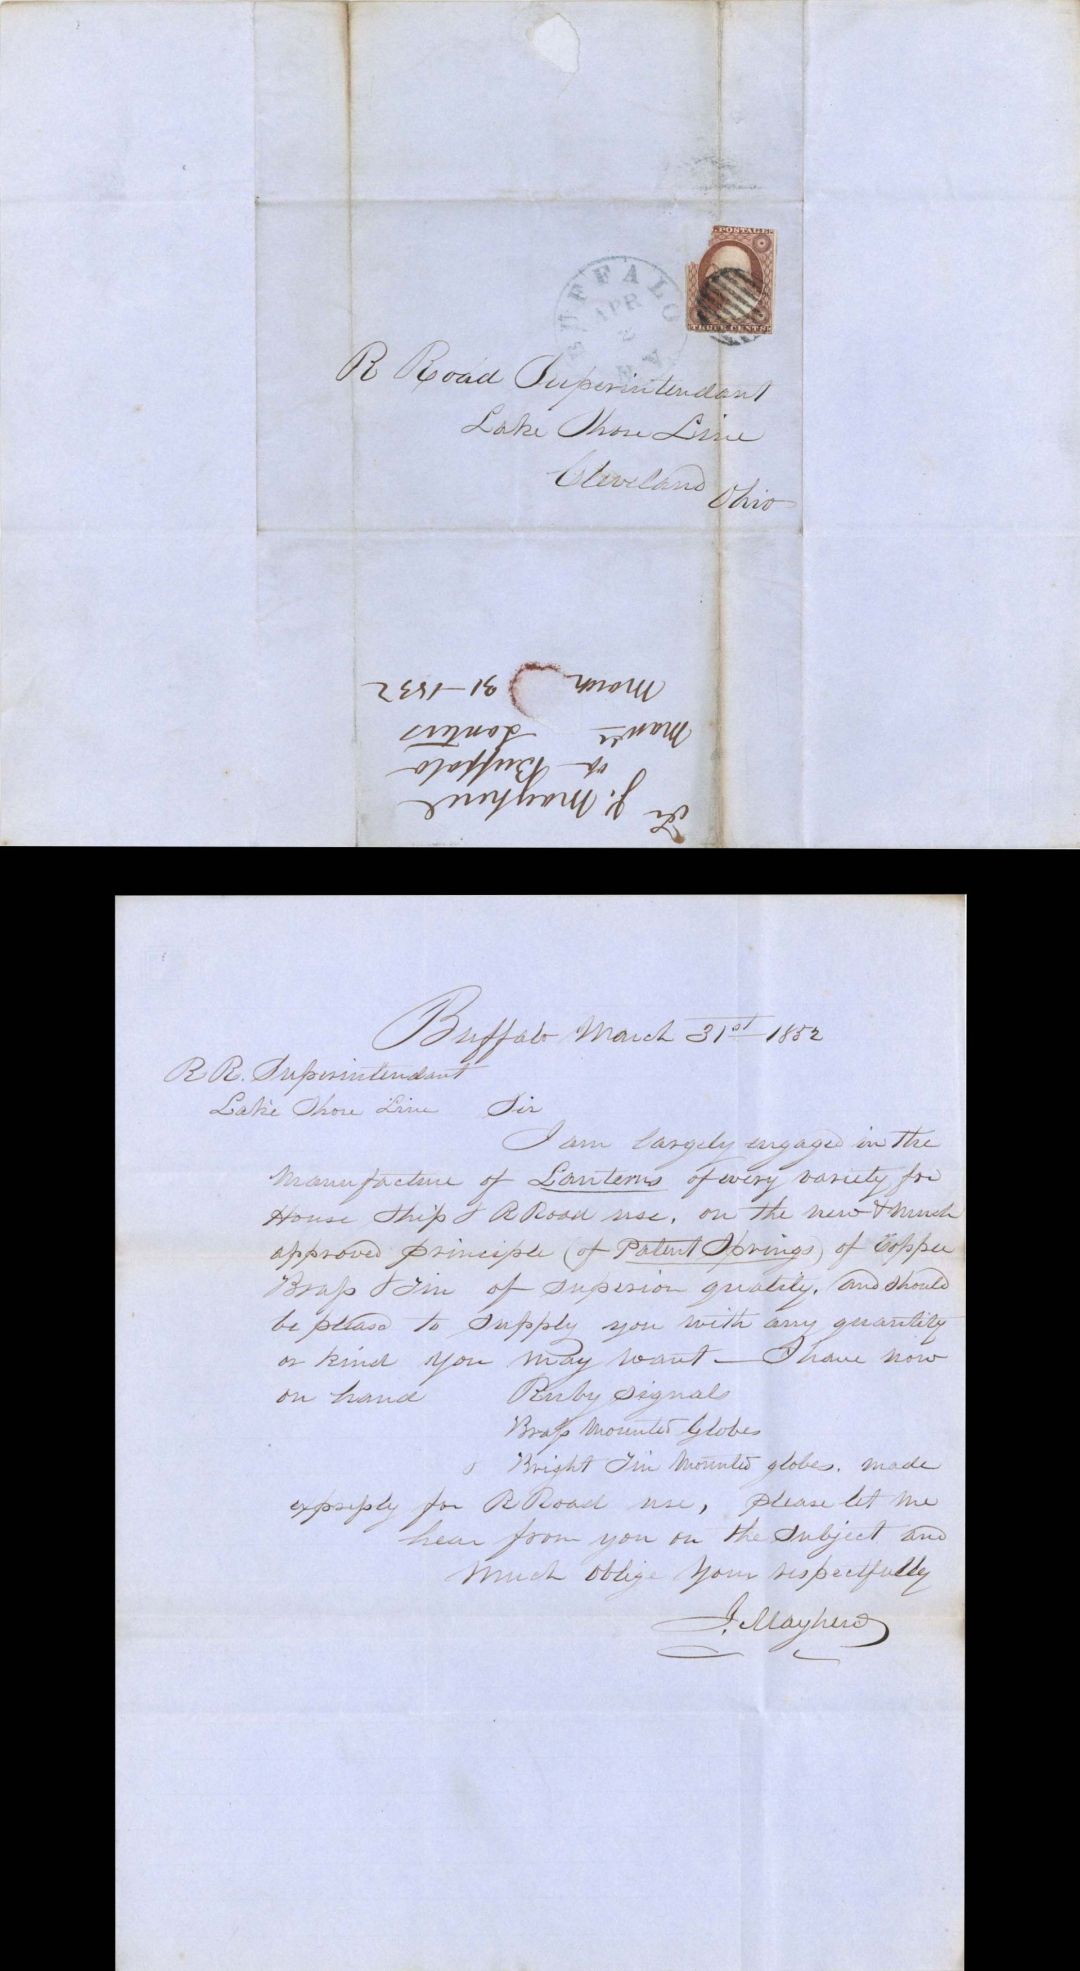 POSTAGE
THREE CENTS
BUFFALO
APR
N.Y.
R Road Superintendant
Lake Shore Line
Cleveland Ohio
J. Mayherd
Buffalo
Lanterns
March 31 - 1852
Buffalo March 31st 1852
R R. Superintendant
Lake Shore Line Sir
I am largely engaged in the
Manufacture of Lanterns of every variety for
House Ship & R Road use, on the new & much
approved principle (of Patent Springs) of Copper
Brass & Tin of superior quality, and should
be pleased to supply you with any quantity
or kind you may want — I have now
on hand Ruby Signals
Brass Mounted Globes
& Bright Tin Mounted globes. made
expressly for R Road use, please let me
hear from you on the subject and
much oblige Your respectfully
J. Mayherd